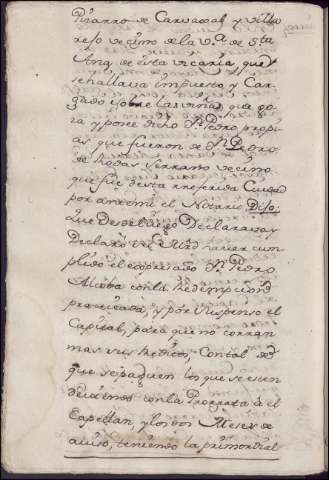 Pizarro de Carvaxal y Villa
relo vecino de la Va. de Sta.
Ana, de esta vicaria, que
se hallava impuesto y Car
gado sobre las viñas, que go
za y posee dicho Dn. Pedro propi
as que fueron de Dn. Pedro
de Rodas Serrano vecino
que fue desta rreferida Ciudad
por ante mi el Notario Dijo:
Que Desde luego Declarava y
Declaró su Mrd. haver cum
plido el expresado Dn. Pedro
con la Redempcion
practicada, y por suspenso el
Capital, para que no corran
mas sus Reditos, Con tal de
que se paguen los que se esten
deviendo con la Prorrata a el
Capellan, y los dos Meses de
aviso, teniendo la primordial